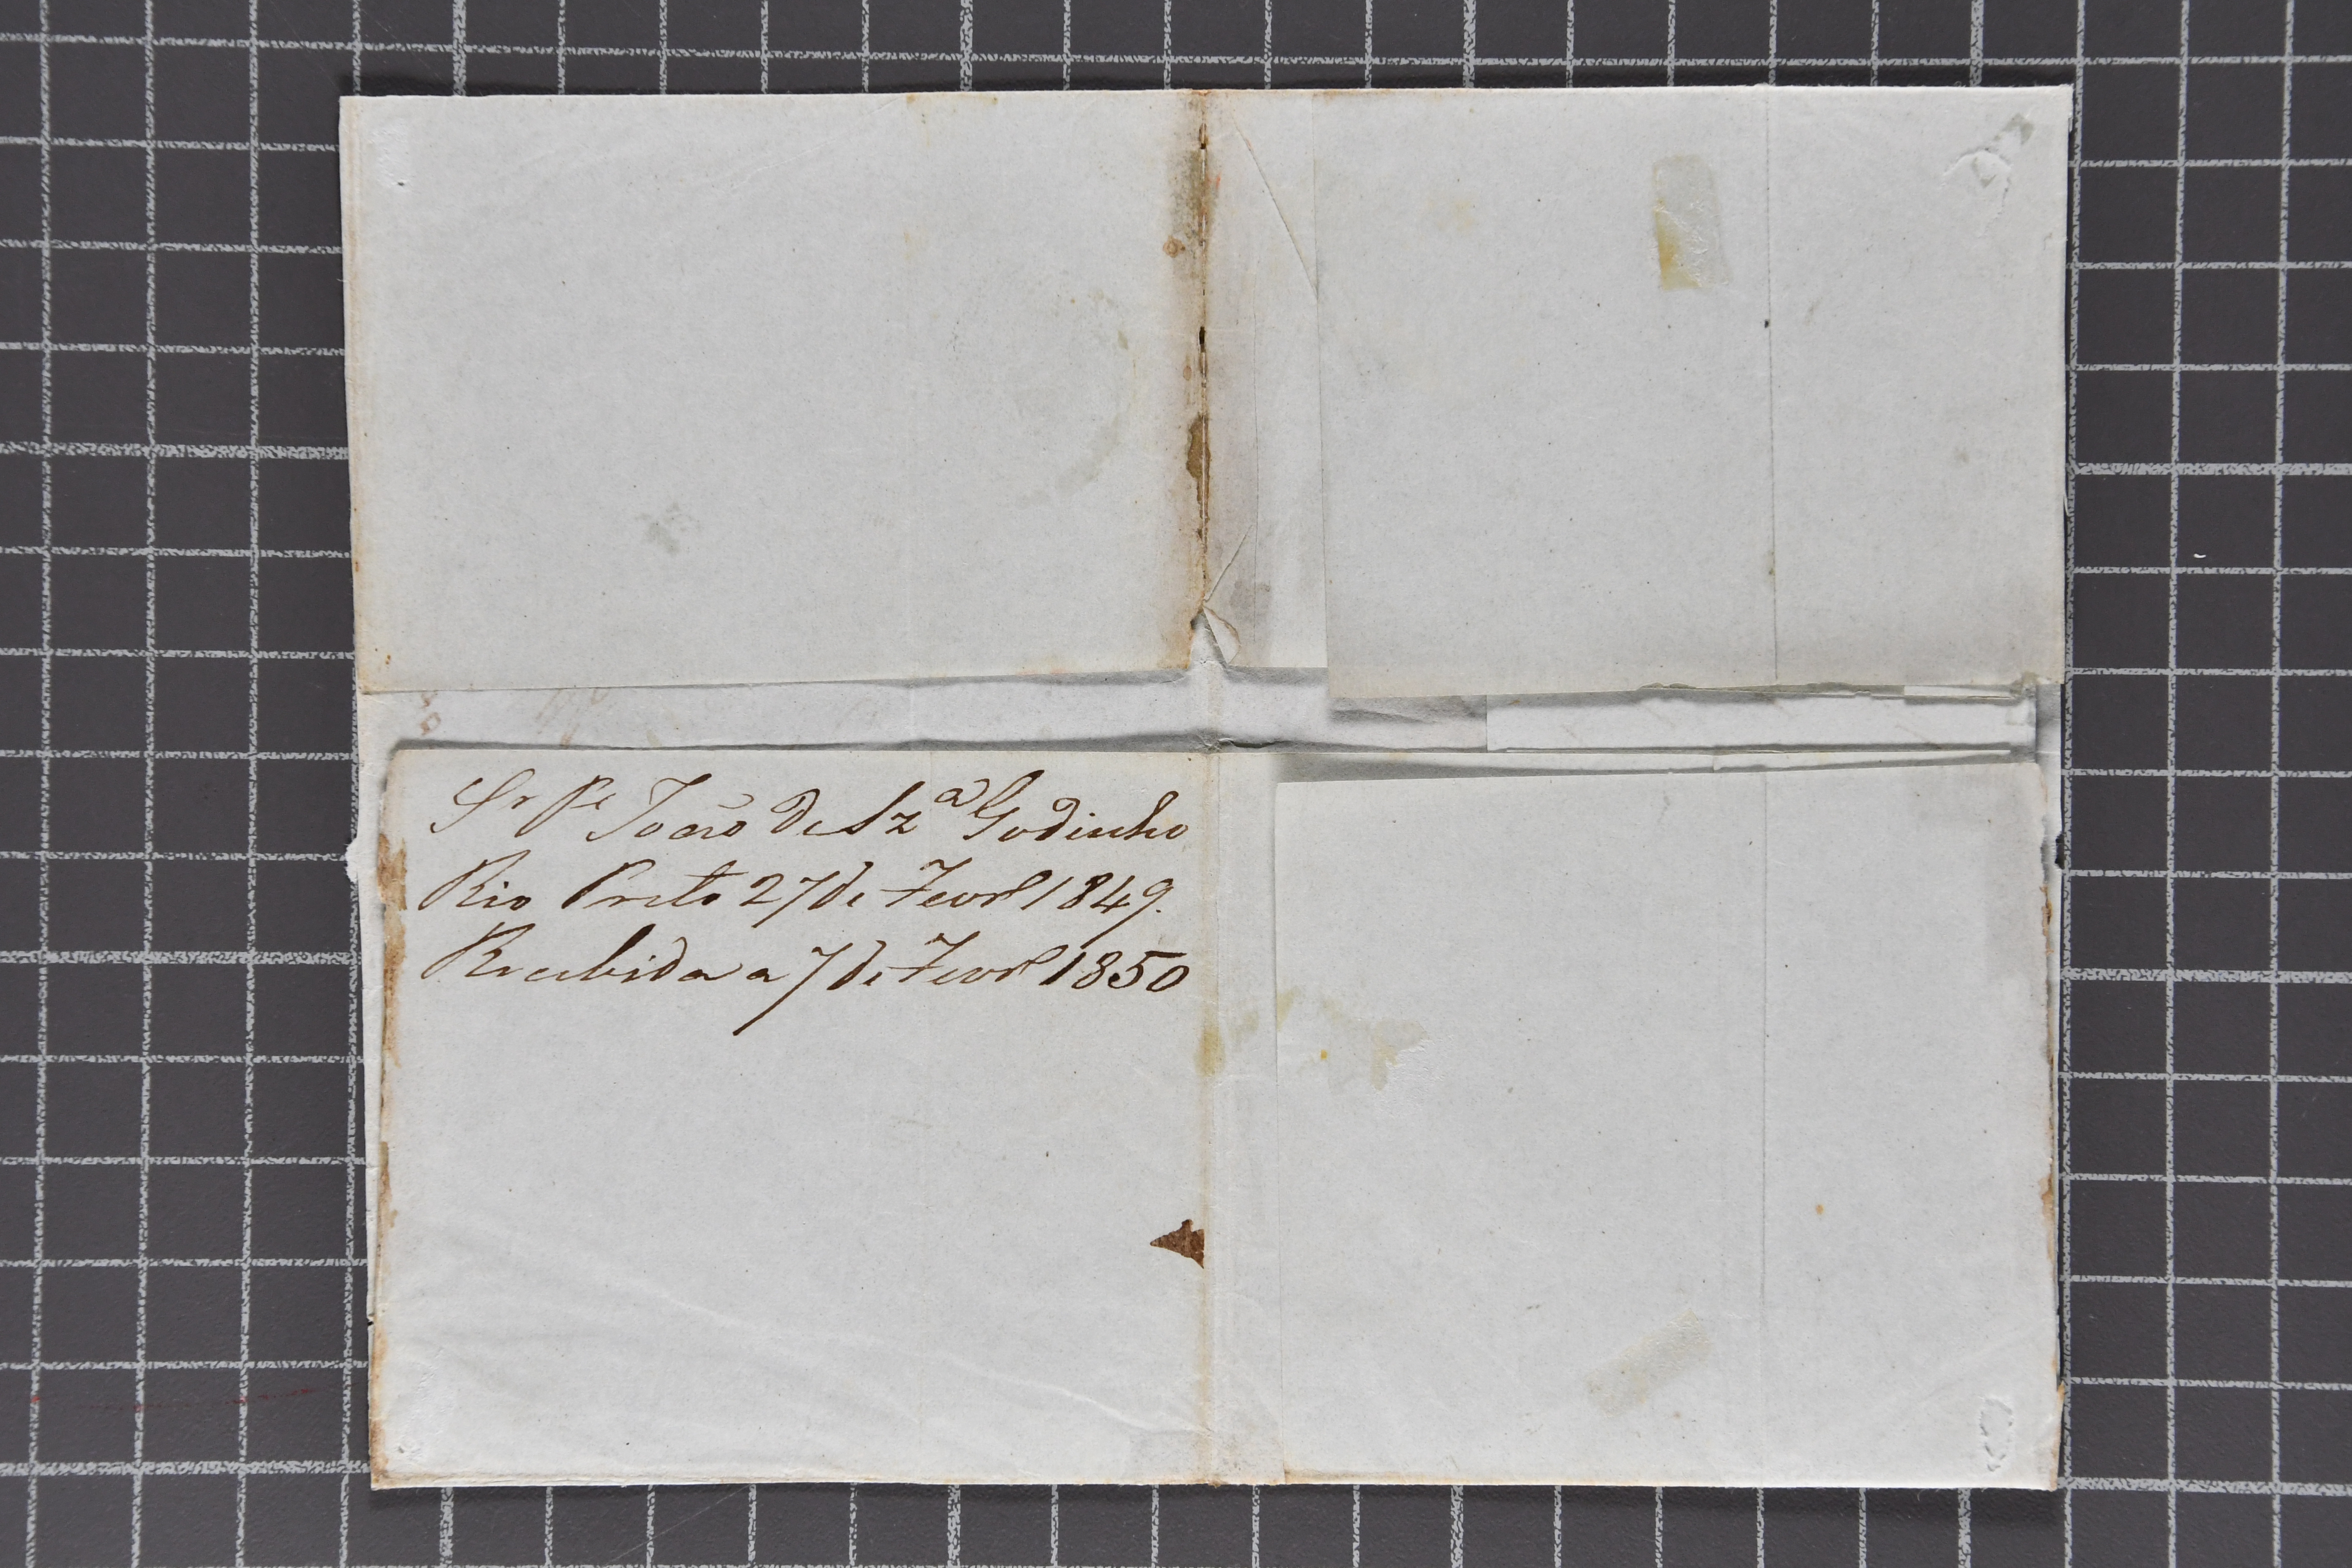 Sr Pe João de Sza Godinho
Rio Preto 27 de Fevr 1849.
Recebida a 7 de Fevr 1850